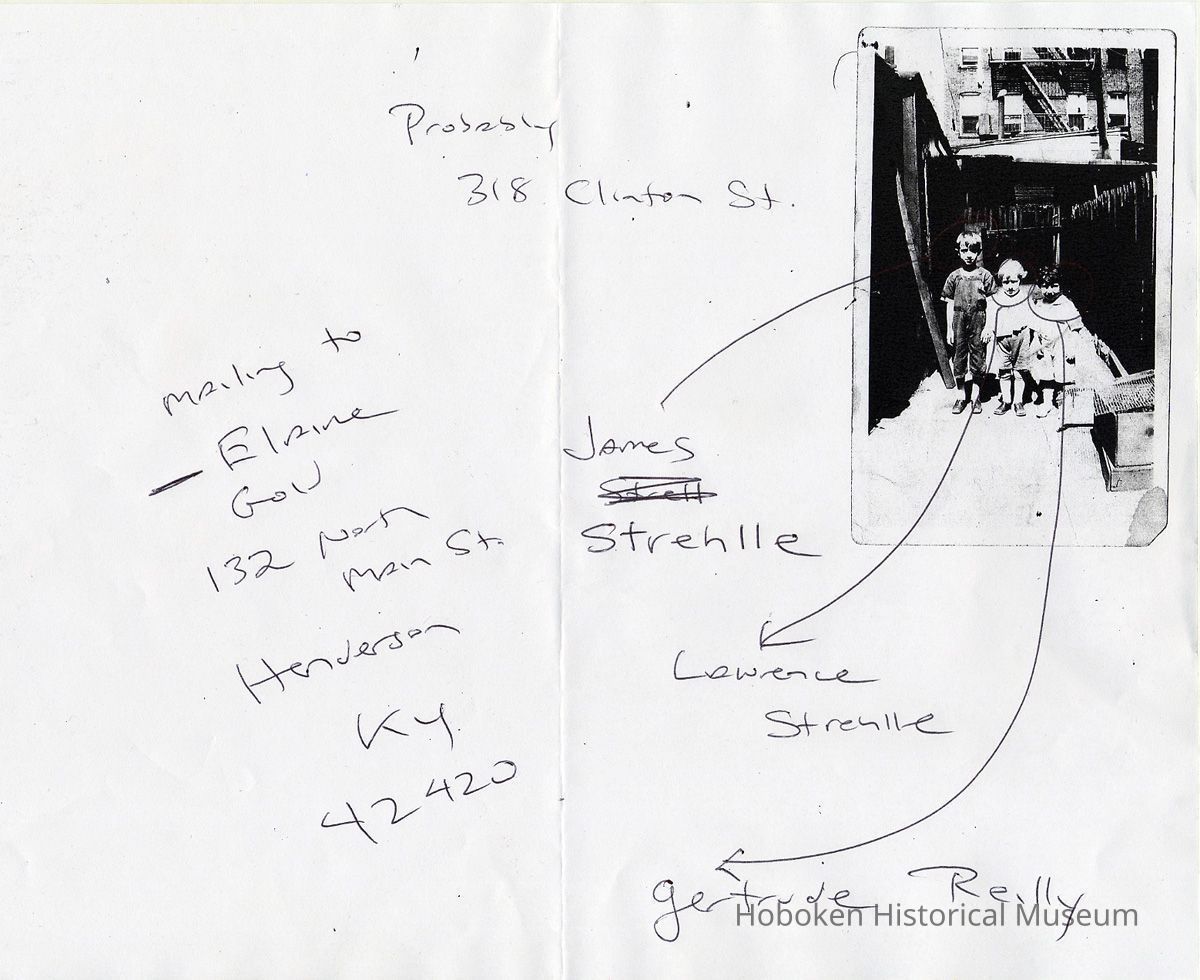 Probably
318 Clinton St.
mailing to
— Elaine
Gold
132 North
Main St.
Henderson
KY
42420
James
Strehlle
Lawrence
Strehlle
Gertrude Reilly
Hoboken Historical Museum